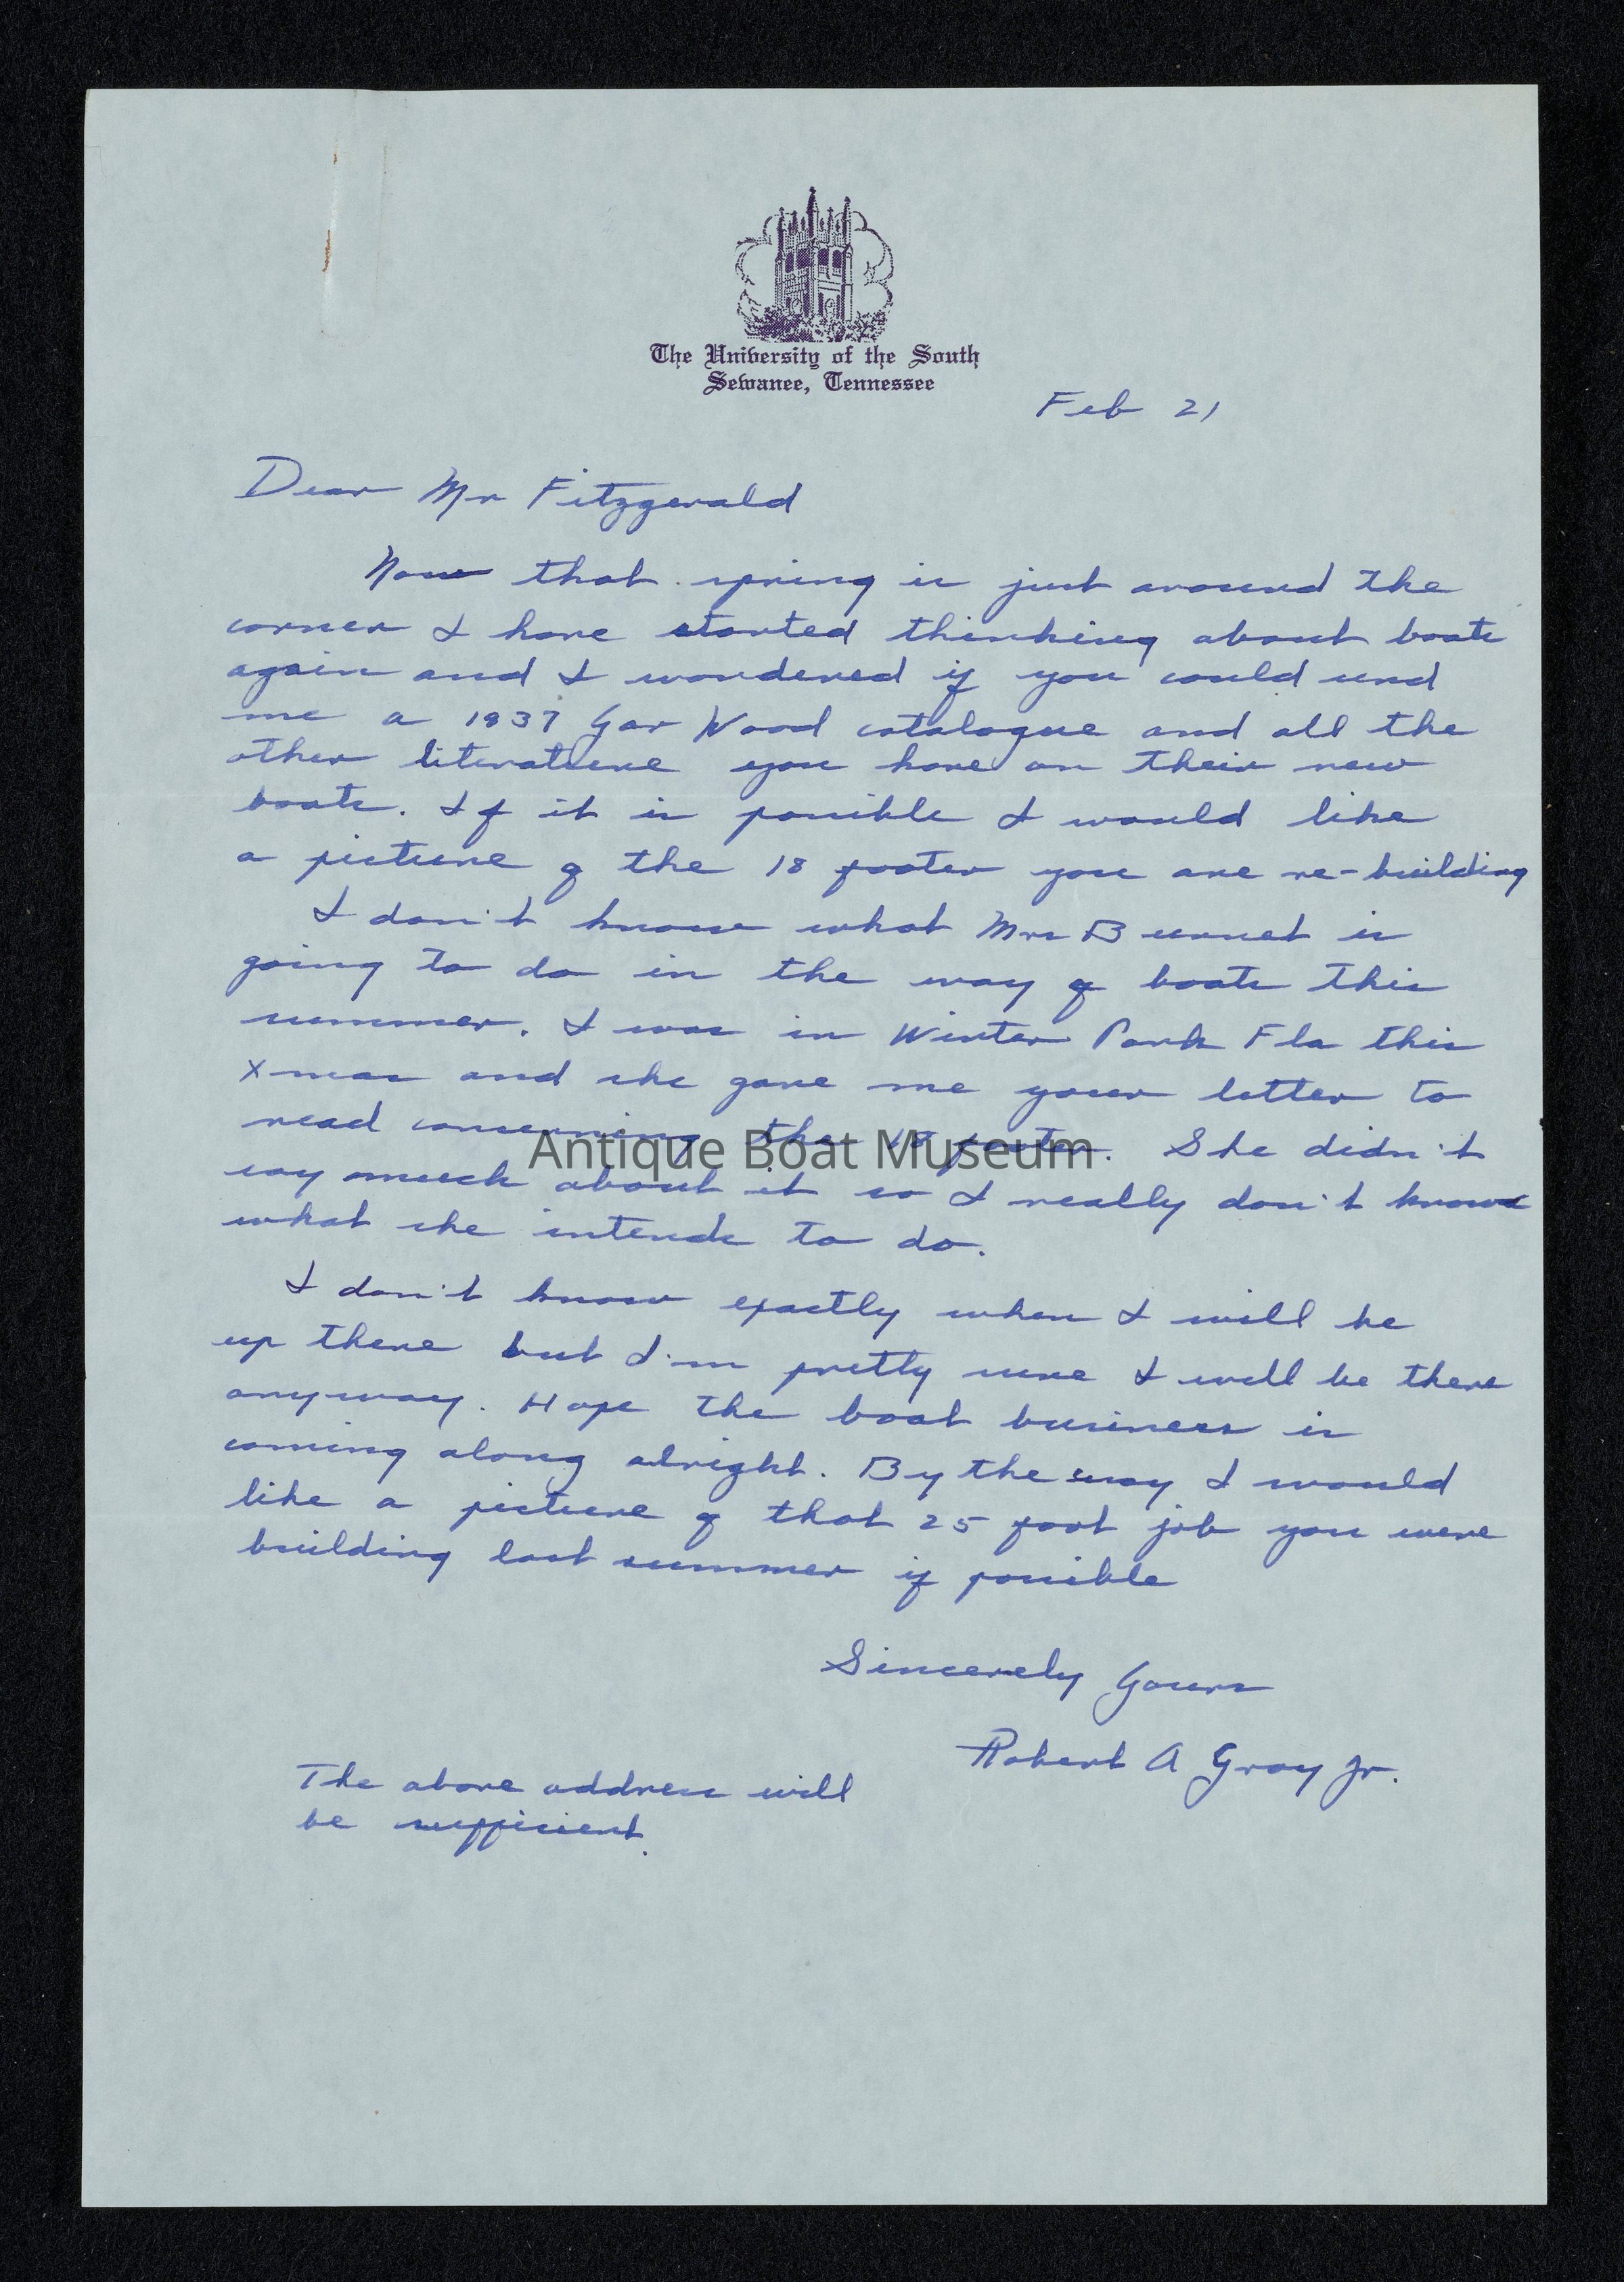 The University of the South
Sewanee, Tennessee
Feb 21
Dear Mr Fitzgerald
Now that spring is just around the
corner I have started thinking about boats
again and I wondered if you could send
me a 1937 Gar Wood catalogue and all the
other literature you have on their new
boats. If it is possible I would like
a picture of the 18 footer you are re-building
I don't know what Mrs Burnet is
going to do in the way of boats this
summer. I was in Winter Park Fla this
Xmas and she gave me your letter to
read concerning the 18 footer. She didn't
Antique Boat Museum
say much about it so I really don't know
what she intends to do.
I don't know exactly when I will be
up there but I'm pretty sure I will be there
anyway. Hope the boat business is
coming along alright. By the way I would
like a picture of that 25 foot job you were
building last summer if possible
Sincerely Yours
Robert A Gray Jr.
The above address will
be sufficient.